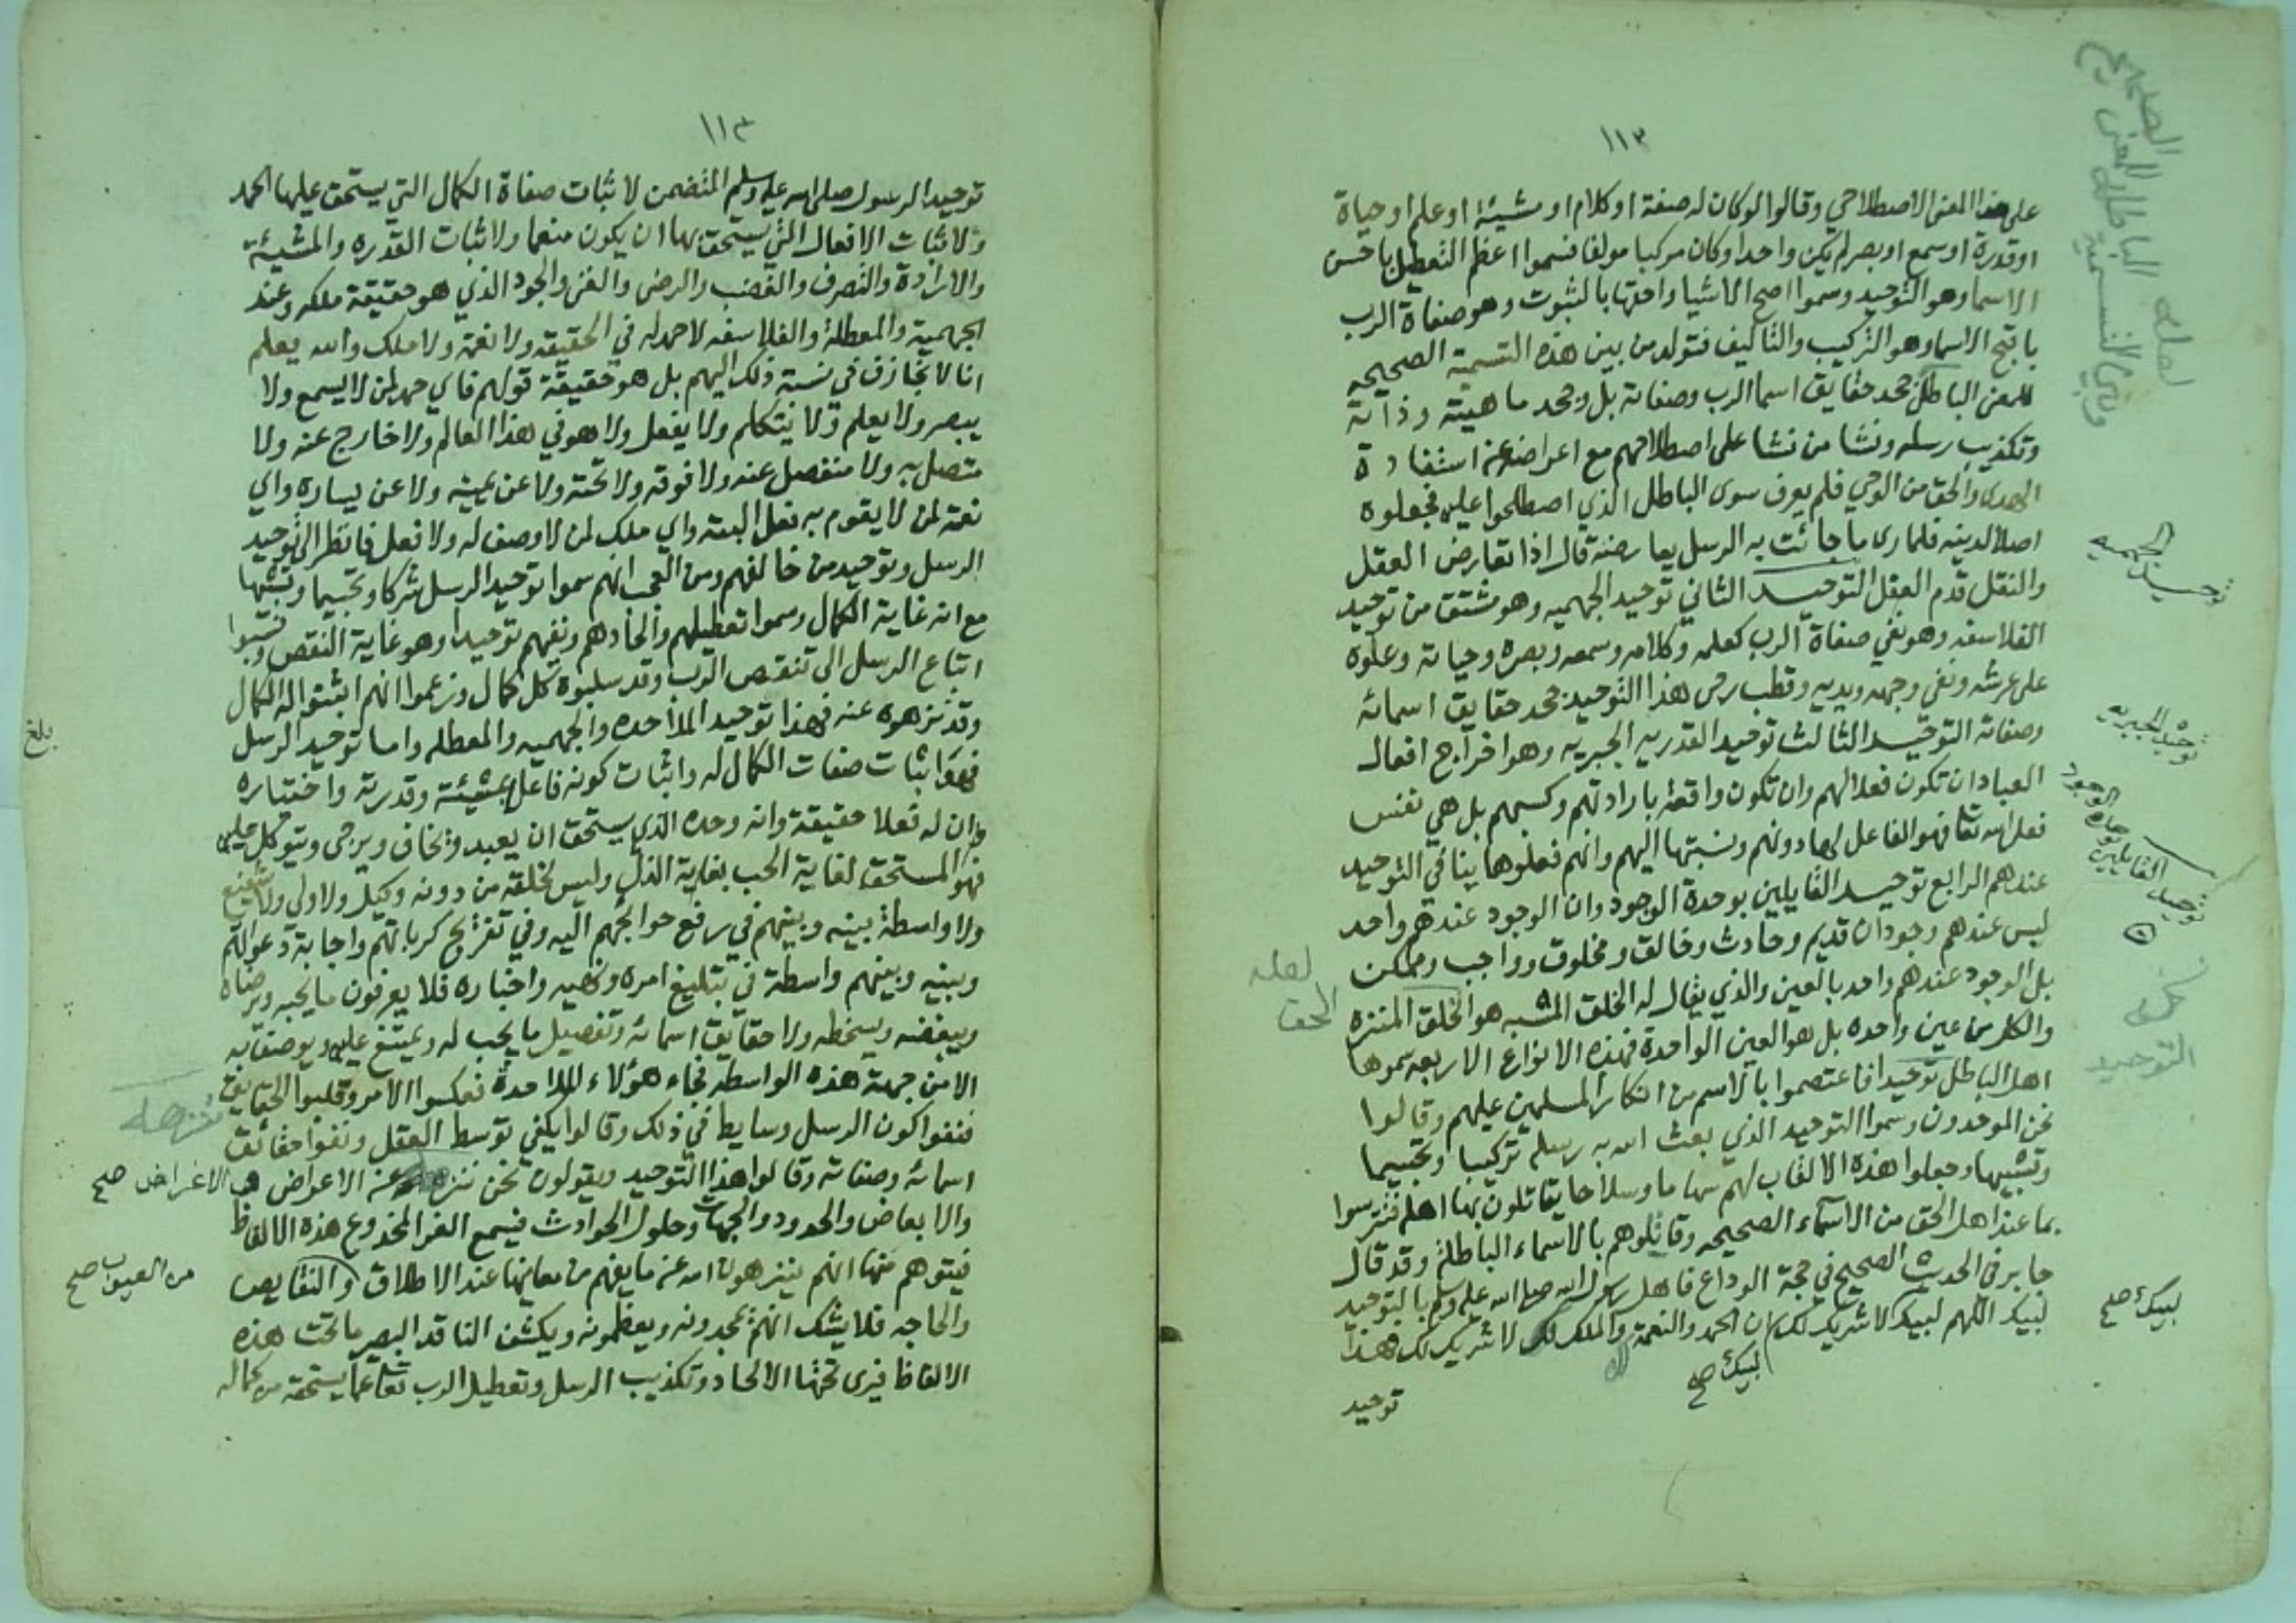 ١١٢
على هذا المعنى الاصطلاحي وقالوا لوكان له صفة او كلام او مشيئة او علم او حياة
او قدرة او سمع او بصر لم يكن واحدا وكان مركبا مولفا فسموا اعظم التعطيل باحسن
الاسما وهو التوحيد وسموا اصح الاشيا واحقها بالثبوت وهو صفاة الرب
باقبح الاسما وهو التركيب والتاليف فتولد من بين هذه التسمية الصحيحه
للمعنى الباطل جحد حقايق اسما الرب وصفاته بل وجحد ماهيته وذاته
وتكذيب رسله ونشا من نشا على اصطلاحهم مع اعراضه عن استفادة
الهدى والحق من الوحي فلم يعرف سوى الباطل الذي اصطلحوا عليه فجعلوه
اصلا لدينه فلما رى ما جائت به الرسل يعارضه قال اذا تعارض العقل
والنقل قدم العقل التوحيد الثاني توحيد الجهميه وهو مشتق من توحيد
الفلاسفه وهو نفي صفاة الرب كعلمه وكلامه وسمعه وبصره وحياته وعلوه
على عرشه ونفى وجهه ويديه وقطب رحى هذا التوحيد جحد حقايق اسمائه
وصفاته التوحيد الثالث توحيد القدريه الجبريه وهو اخراج افعال
العباد ان تكون فعلا لهم وان تكون واقعة بارادتهم وكسبهم بل هي نفس
فعل الله تعا فهو الفاعل لها دونهم ونسبتها اليهم وانهم فعلوها ينافي التوحيد
عندهم الرابع توحيد القايلين بوحدة الوجود وان الوجود عندهم واحد
ليس عندهم وجودان قديم وحادث وخالق ومخلوق وواجب وممكن
بل الوجود عندهم واحد بالعين والذي يقال له الخلق المشبه هو الخلق المنزه
والكل من عين واحده بل هو العين الواحدة فهذه الانواع الاربعه سموها
اهل الباطل توحيدا فاعتصموا بالاسم من انكار المسلمين عليهم وقالوا
نحن الموحدون وسموا التوحيد الذي بعث الله به رسله تركيبا وتجسيما
وتشبيها وجعلوا هذه الالقاب لهم سهاما وسلاحا يقاتلون بها اهله فتترسوا
بما عند اهل الحق من الاسماء الصحيحه وقاتلوهم بالاسماء الباطلة وقد قال
جابر في الحديث الصحيح في حجة الوداع فاهل رسول الله صلى الله عليه وسلم بالتوحيد
لبيك اللهم لبيك لا شريك لك ان الحمد والنعمة لك والملك لا شريك لك هذا
لبيك صح
توحيد
لعله
الباطل للمعنى
الصحيح
توحيد الجهميه
توحيد الجبريه
توحيد القايلين بوحدة الوجود
لعله
الحق
التوحيد
لبيك صح
١١٣
توحيد الرسول صلى الله عليه وسلم المتضمن لاثبات صفاة الكمال التي يستحق عليها الحمد
ولاثبات الافعال التي يستحق بها ان يكون منعما ولاثبات القدره والمشيئة
والارادة والتصرف والغضب والرضى والغنى والجود الذي هو حقيقة ملكه وعند
الجهمية والمعطلة والفلاسفه لا حمد له في الحقيقه ولا نعمة ولا ملك والله يعلم
انا لا نجازف في نسبة ذلك اليهم بل هو حقيقة قولهم فاي حمد لمن لا يسمع ولا
يبصر ولا يعلم ولا يتكلم ولا يفعل ولا هو في هذا العالم ولا خارج عنه ولا
متصل به ولا منفصل عنه ولا فوقه ولا تحته ولا عن يمينه ولا عن يساره واي
نعمة لمن لا يقوم به فعل البته واي ملك لمن لا وصف له ولا فعل فانظر الى توحيد
الرسل وتوحيد من خالفهم ومن العجب انهم سموا توحيد الرسل شركا وتجسيما وتشبيها
مع انه غاية الكمال وسموا تعطيلهم والحادهم ونفيهم توحيدا وهو غاية النقص ونسبوا
اتباع الرسل الى تنقص الرب وقد سلبوه كل كمال وزعموا انهم اثبتوا له الكمال
وقد نزهوه عنه فهذا توحيد الملاحده والجهميه والمعطله واما توحيد الرسل
فهو اثبات صفات الكمال له واثبات كونه فاعلا بمشيئته وقدرته واختياره
وان له فعلا حقيقة وانه وحده الذي يستحق ان يعبد ويخاف ويرجى ويتوكل عليه
فهو المستحق لغاية الحب بغاية الذل وليس لخلقه من دونه وكيل ولا ولي ولا شفيع
ولا واسطة بينه وبينهم في رفع حوائجهم اليه وفي تفريج كرباتهم واجابة دعواتهم
وبينه وبينهم واسطة في تبليغ امره ونهيه واخباره فلا يعرفون ما يحبه ويرضاه
ويبغضه ويسخطه ولا حقايق اسمائه وتفصيل ما يجب له ويمتنع عليه ويوصف به
الا من جهة هذه الواسطه فجاء هؤلاء الملاحدة فعكسوا الامر وقلبوا الحقايق
فنفوا كون الرسل وسايط في ذلك وقالوا يكفي توسط العقل ونفوا حقائق
اسمائه وصفاته وقالوا هذا التوحيد ويقولون نحن ننزهه عن الاعراض
والابعاض والحدود والجهات وحلول الحوادث فيسمع الغر المخدوع هذه الالفاظ
فيتوهم منها انهم ينزهون الله عن ما يفهم من معانيها عند الاطلاق والنقايص
والحاجه فلا يشك انهم يمجدونه ويعظمونه ويكشف الناقد البصير ما تحت هذه
الالفاظ فيرى تحتها الالحاد وتكذيب الرسل وتعطيل الرب تعا عما يستحقه من كماله
بلغ
ننزهه
الاغراض صح
من العيوب صح